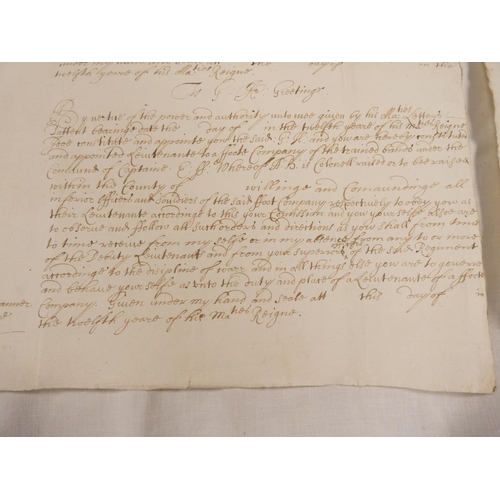 twelfth yeare of his Maties Reigne.
To G. Greetinge
By vertue of the power and authority unto mee given by his Maties Letters
Pattent bearinge date the day of in the twelfth yeare of his Maties Reigne
I doe constitute and appointe you the said G. and you are hereby constituted
and appointed Lieutenante to a ffoote Company of the trained bands under the
Comaund of Captaine E. ff. Whereof A. B. is Colonell raised or to bee raised
within the County of willinge and Comaundinge all
inferior officers and Souldiers of the said ffoot Company respectively to obey you as
their Lieutenante accordinge to this your Comission and you your selfe alsoe are
to observe and follow all such orders and directions as you shall from time
to time receive from my selfe or in my absence from any two or more
of the Deputy Lieutenants and from your superiour officers of the said Regiment
accordinge to the disipline of warr and in all things else you are to governe
and behave your selfe as unto the duty and place of a Lieutenante of a ffoote
Company. Given under my hand and seale att this day of in
the twelfth yeare of his Maties Reigne.